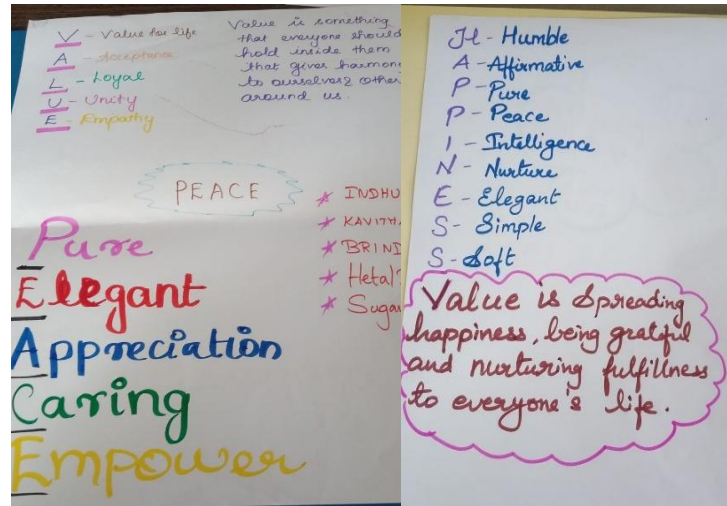 V - Value for life
A - Acceptance
L - Loyal
U - Unity
E - Empathy
Value is something
that everyone should
hold inside them
that gives harmony
to ourselves & other
around us.
PEACE
* INDHU
* KAVITHA
* BRIND
* Hetal
* Sugan
Pure
Elegant
Appreciation
Caring
Empower
H - Humble
A - Affirmative
P - Pure
P - Peace
I - Intelligence
N - Nurture
E - Elegant
S - Simple
S - Soft
Value is Spreading
happiness, being grateful
and nurturing fulfillness
to everyone's life.